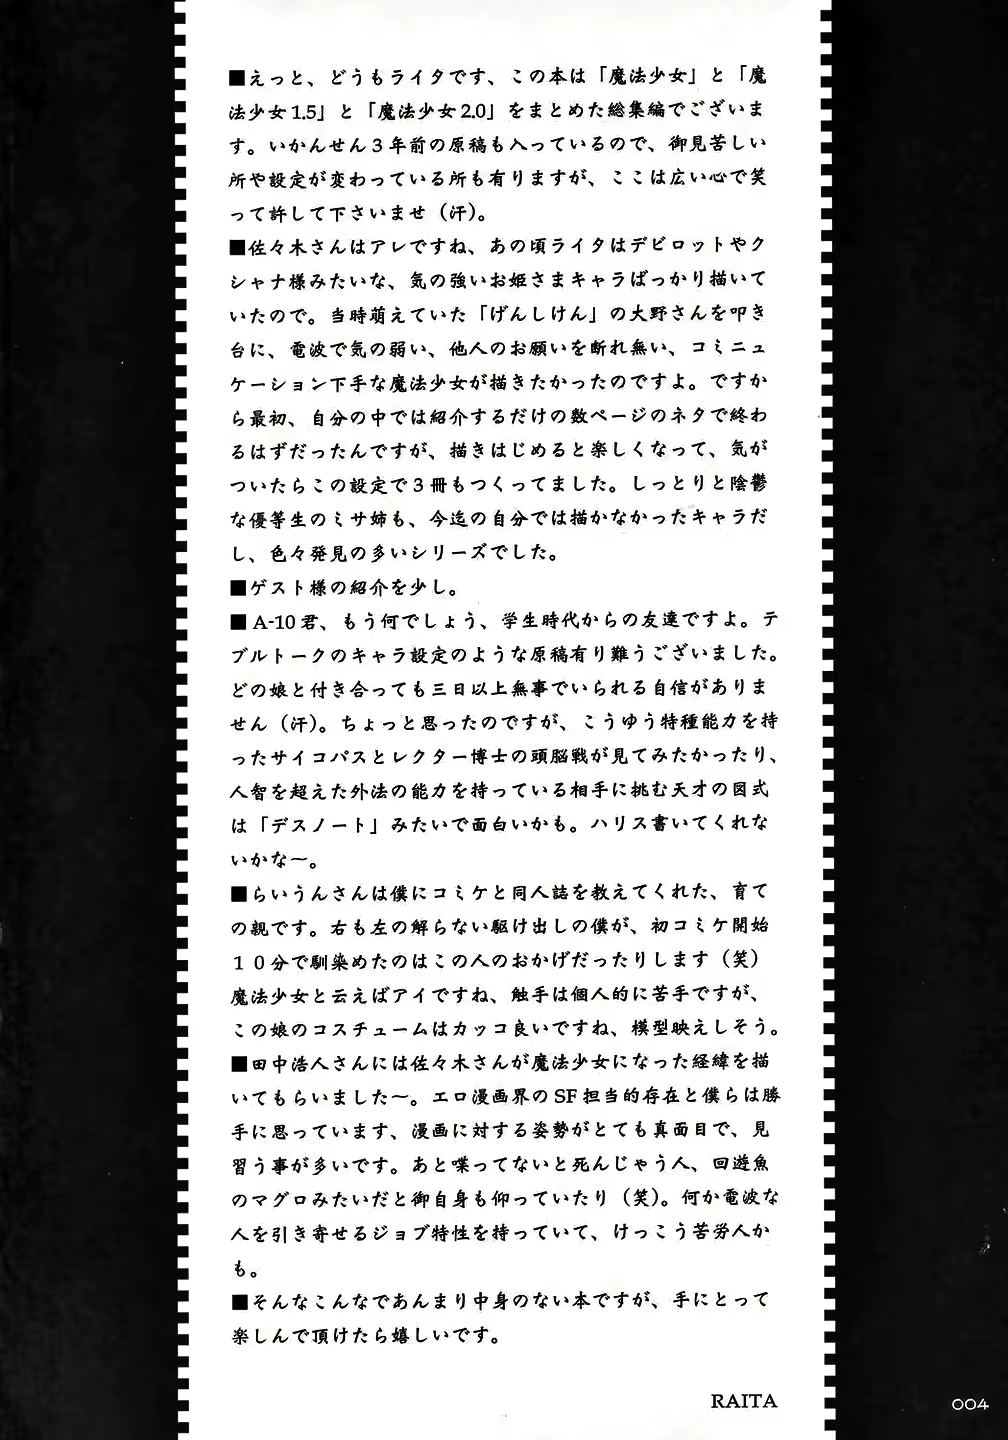 ■えっと、どうもライタです、この本は「魔法少女」と「魔
法少女1.5」と「魔法少女2.0」をまとめた総集編でございま
す。いかんせん3年前の原稿も入っているので、御見苦しい
所や設定が変わっている所も有りますが、ここは広い心で笑
って許して下さいませ（汗）。
■佐々木さんはアレですね、あの頃ライタはデビロットやク
シャナ様みたいな、気の強いお姫さまキャラばっかり描いて
いたので。当時萌えていた「げんしけん」の大野さんを叩き
台に、電波で気の弱い、他人のお願いを断れ無い、コミニュ
ケーション下手な魔法少女が描きたかったのですよ。ですか
ら最初、自分の中では紹介するだけの数ページのネタで終わ
るはずだったんですが、描きはじめると楽しくなって、気が
ついたらこの設定で3冊もつくってました。しっとりと陰鬱
な優等生のミサ姉も、今迄の自分では描かなかったキャラだ
し、色々発見の多いシリーズでした。
■ゲスト様の紹介を少し。
■A-10君、もう何でしょう、学生時代からの友達ですよ。テ
ブルトークのキャラ設定のような原稿有り難うございました。
どの娘と付き合っても三日以上無事でいられる自信がありま
せん（汗）。ちょっと思ったのですが、こうゆう特種能力を持
ったサイコパスとレクター博士の頭脳戦が見てみたかったり、
人智を超えた外法の能力を持っている相手に挑む天才の図式
は「デスノート」みたいで面白いかも。ハリス書いてくれな
いかな〜。
■らいうんさんは僕にコミケと同人誌を教えてくれた、育て
の親です。右も左の解らない駆け出しの僕が、初コミケ開始
１０分で馴染めたのはこの人のおかげだったりします（笑）
魔法少女と云えばアイですね、触手は個人的に苦手ですが、
この娘のコスチュームはカッコ良いですね、模型映えしそう。
■田中浩人さんには佐々木さんが魔法少女になった経緯を描
いてもらいました〜。エロ漫画界のSF担当的存在と僕らは勝
手に思っています、漫画に対する姿勢がとても真面目で、見
習う事が多いです。あと喋ってないと死んじゃう人、回遊魚
のマグロみたいだと御自身も仰っていたり（笑）。何か電波な
人を引き寄せるジョブ特性を持っていて、けっこう苦労人か
も。
■そんなこんなであんまり中身のない本ですが、手にとって
楽しんで頂けたら嬉しいです。
RAITA
004